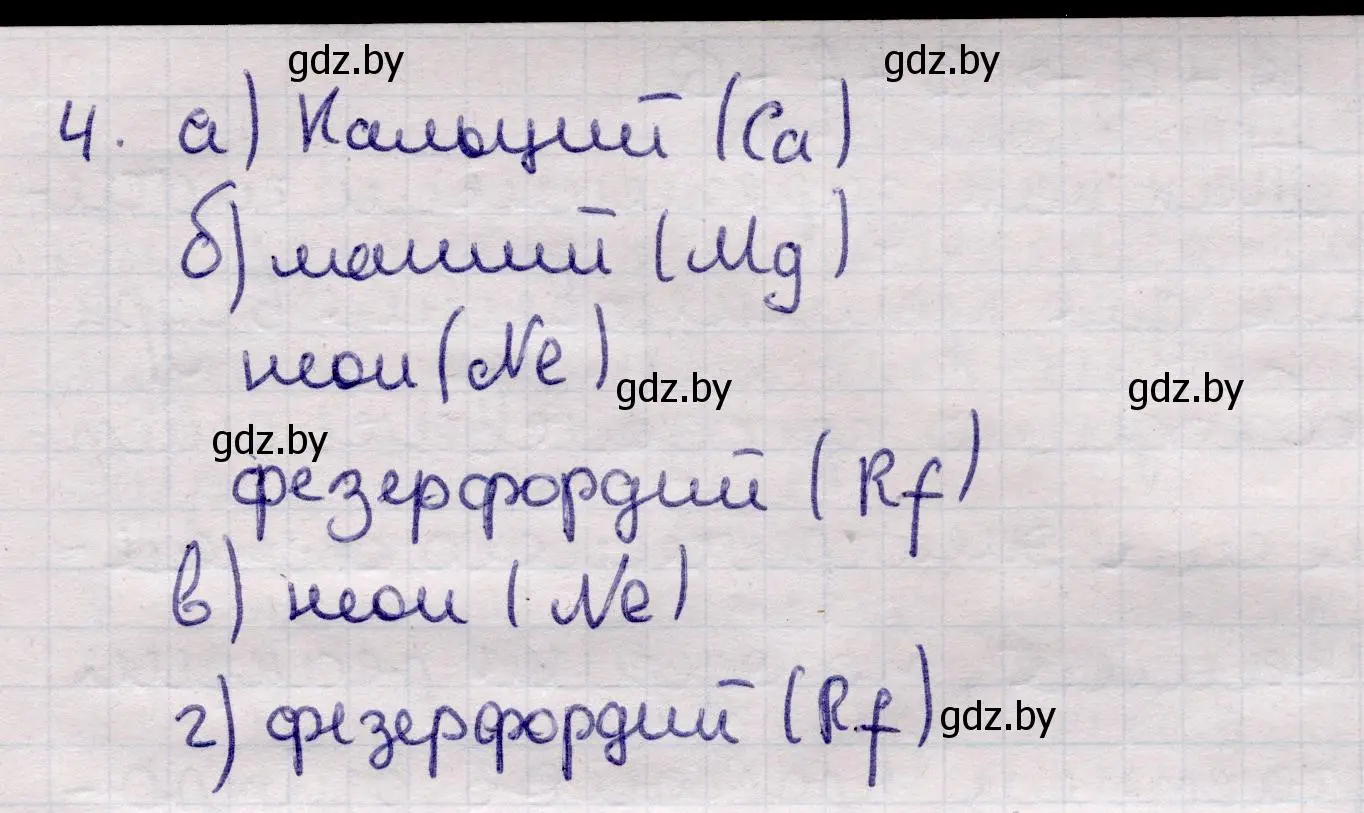 gdz.by gdz.by
4. а) Кальций (Ca)
б) магний (Mg)
неон (Ne)
gdz.by gdz.by
gdz.by
фезерфордий (Rf)
в) неон (Ne)
г) фезерфордий (Rf)
gdz.by